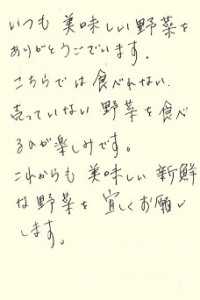 いつも 美味しい野菜を
ありがとうございます.
こちらでは食べれない.
売っていない 野菜を食べ
るのが楽しみです。
これからも 美味しい 新鮮
な野菜を 宜しくお願い
します。